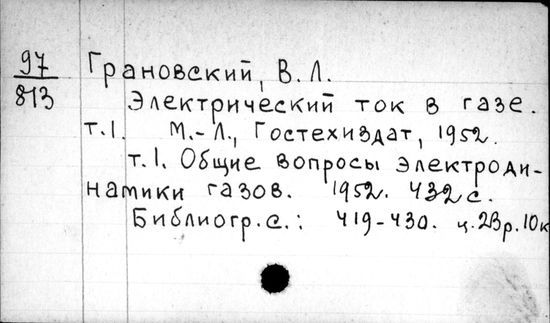 97
813
Грановский, В.Л.
Электрический ток в газе.
т.1. М.-Л., Гостехиздат, 1952.
т.1. Общие вопросы электроди-
намики газов. 1952. 432с.
Библиогр.с.: 419-430. ц.23р.10к